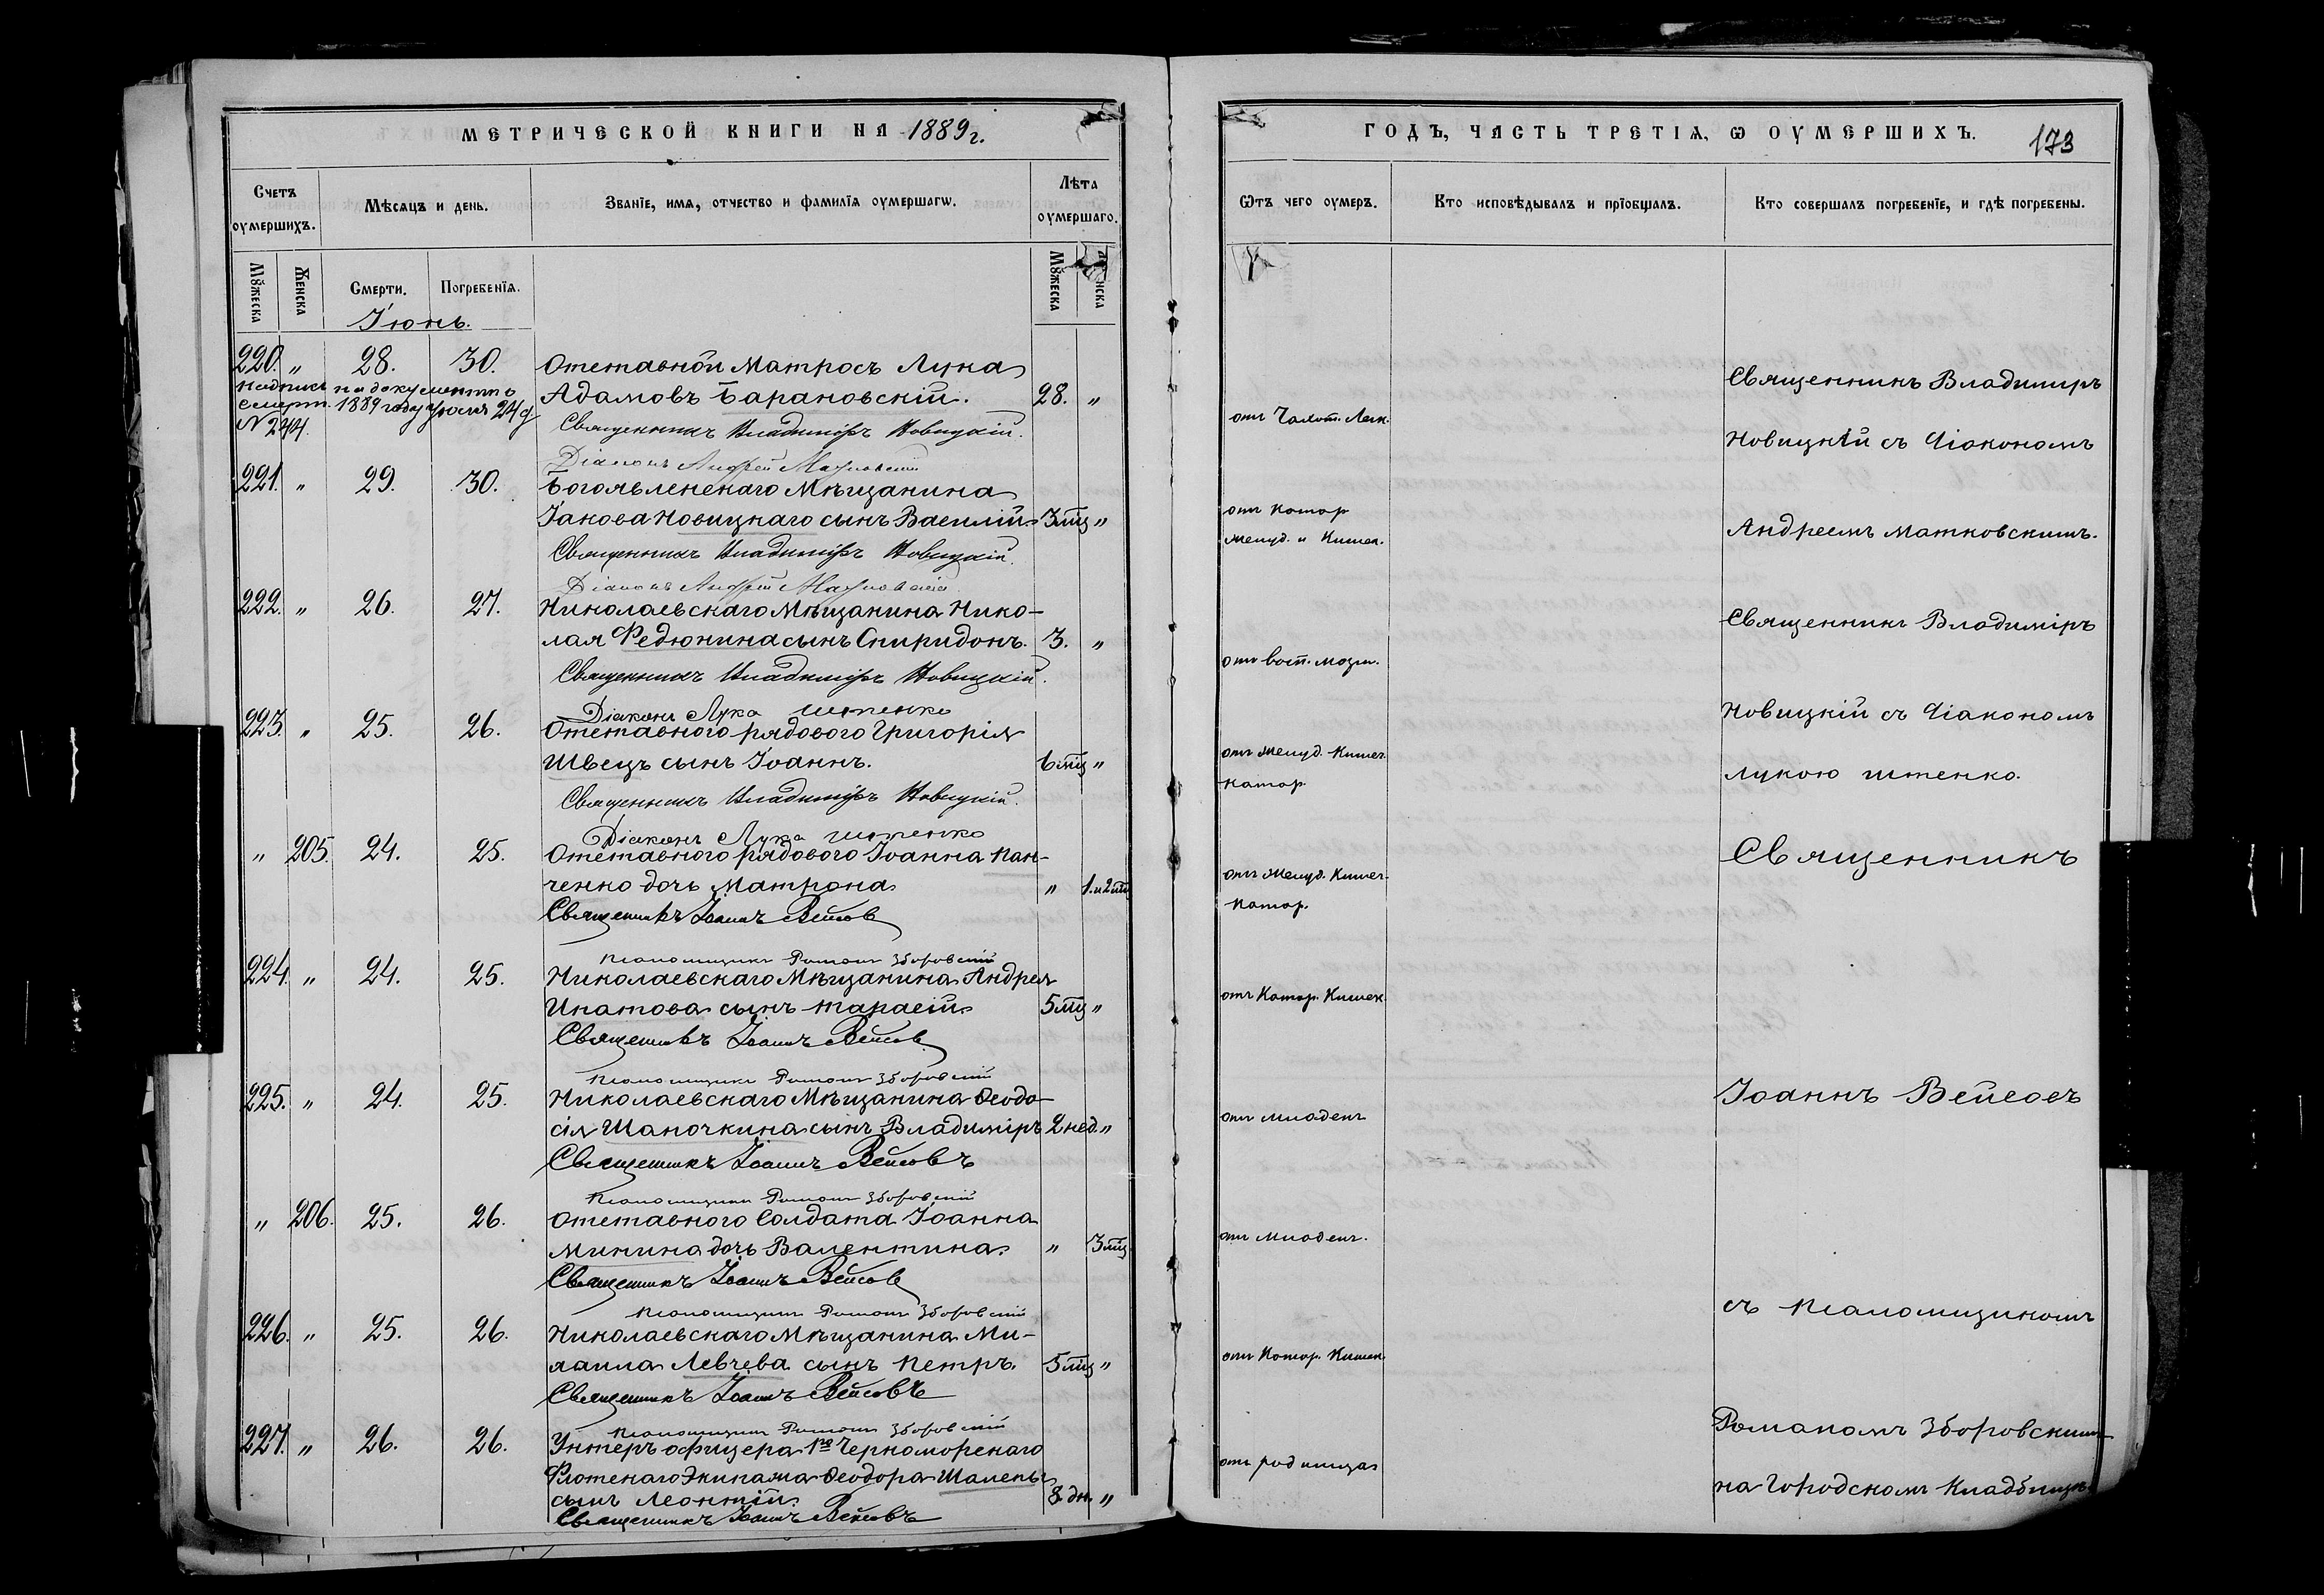 МЕТРИЧЕСКОЙ КНИГИ НА 1889 г.
Счетъ оумершихъ.
Мѣсяцъ и день.
Званїе, имя, отчество и фамилїя оумершагѡ.
Лѣта оумершаго.
Мꙋжеска
Женска
Смерти.
Погребенїя.
Мꙋжеска
Іюнь.
220. " 28. 30. Отставной Матросъ Лука
Адамовъ Барановскій. 28. "
1889 году 24
N 244.
Священникъ Владиміръ Новицкій.
Діаконъ Андрей Матковскій
221. " 29. 30. Богоявленскаго Мѣщанина
Іакова Новицкаго сынъ Василій. 3 мц "
Священникъ Владиміръ Новицкій.
Діаконъ Андрей Матковскій
222. " 26. 27. Николаевскаго Мѣщанина Нико-
лая Федюнина сынъ Спиридонъ. 3. "
Священникъ Владиміръ Новицкій.
Діаконъ Лука Штенко
223. " 25. 26. Отставного рядового Григорія
Швецъ сынъ Іоаннъ. 6 мц "
Священникъ Владиміръ Новицкій.
Діаконъ Лука Штенко
" 205. 24. 25. Отставного рядового Іоанна Пан-
ченко дочь Матрона " 1. и 2 мц
Священникъ Іоаннъ Вейсовъ
Псаломщикъ Романъ Зборовскій
224. " 24. 25. Николаевскаго Мѣщанина Андрея
Ипатова сынъ Тарасій. 5 мц "
Священникъ Іоаннъ Вейсовъ
Псаломщикъ Романъ Зборовскій
225. " 24. 25. Николаевскаго Мѣщанина Ѳеодо-
сія Шапочкина сынъ Владиміръ 2 нед. "
Священникъ Іоаннъ Вейсовъ
Псаломщикъ Романъ Зборовскій
" 206. 25. 26. Отставного Солдата Іоанна
Минина дочь Валентина. " 3 мц
Священникъ Іоаннъ Вейсовъ
Псаломщикъ Романъ Зборовскій
226. " 25. 26. Николаевскаго Мѣщанина Ми-
хаила Левчева сынъ Петръ. 5 мц "
Священникъ Іоаннъ Вейсовъ
Псаломщикъ Романъ Зборовскій
227. " 26. 26. Унтеръ офицера 1го Черноморскаго
Флотскаго Экипажа Ѳеодора
сынъ Леонтій. 8 дн. "
Священникъ Іоаннъ Вейсовъ
ГОДЪ, ЧАСТЬ ТРЕТІЯ, Ѡ ОУМЕРШИХЪ.
173
Ѿтъ чего оумеръ.
Кто исповѣдывалъ и прїобщалъ.
Кто совершалъ погребенїе, и гдѣ погребены.
отъ Чахот. Легк.
отъ Катар
Желуд. и Кишек.
отъ восп. мозга.
отъ Желуд. Кишеч.
Катар.
отъ Желуд. Кишеч.
Катар.
отъ Катар. Кишек.
отъ младенч
отъ младенч.
отъ Катар. Кишек.
отъ родимца
Священникъ Владиміръ
Новицкій съ Діакономъ
Андреемъ Матковскимъ.
Священникъ Владиміръ
Новицкій съ Діакономъ
Лукою Штенко.
Священникъ
Іоаннъ Вейсовъ
съ Псаломщикомъ
Романомъ Зборовскимъ
на Городскомъ Кладбищѣ.